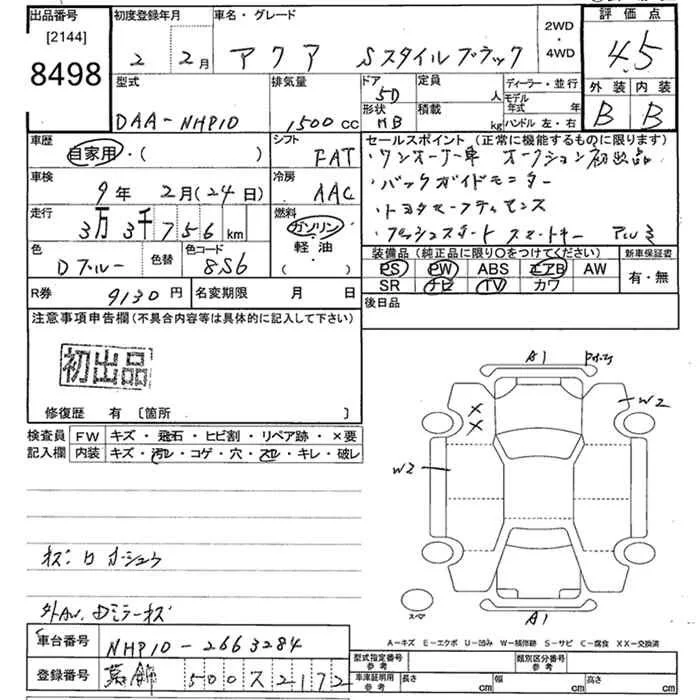 出品番号
[2144]
8498
初度登録年月
2 2月
車名・グレード
アクア Sスタイルブラック
2WD
・
4WD
評価点
4.5
外装 内装
B B
型式
DAA-NHP10
排気量
1500cc
ドア
5D
形状
HB
定員
人
積載
kg
ディーラー・並行
モデル年式 年
ハンドル 左・右
車歴
自家用・( )
シフト
FAT
車検
9年 2月(24日)
冷房
AAC
走行
3万3千756km
燃料
ガソリン
軽油
・
色
Dブルー
色替
色コード
8S6
R券
9130円
名変期限 月 日
セールスポイント(正常に機能するものに限ります)
・ワンオーナー車 オークション初出品
・バックガイドモニター
・トヨタセーフティセンス
・プッシュスタート スマートキー
装備品(純正品に限り〇をつけてください)
新車保証書
PS PW ABS エアB AW
SR ナビ TV カワ
有・無
後日品
注意事項申告欄(不具合内容等は具体的に記入して下さい)
初出品
修復歴 有 〔箇所 〕
検査員記入欄
FW キズ・飛石・ヒビ割・リペア跡・×要
内装 キズ・汚レ・コゲ・穴・スレ・キレ・破レ
A1
W2
W2
A1
スペア
A=キズ E=エクボ U=凹み W=補修跡 S=サビ C=腐食 XX=交換済
車台番号
NHP10-2663284
登録番号
葛飾 500ス2172
型式指定番号
参考
類別区分番号
参考
車庫証明用
参考
長さ cm
幅 cm
高さ cm